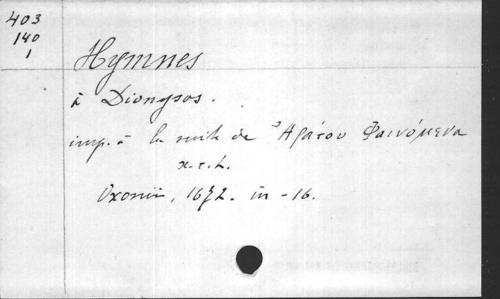 403
140
1
Hymnes
à Dionysos.
imp. à la suite de Ἀράτου Φαινόμενα
κ.τ.λ.
Oxonii, 1672. in-16.